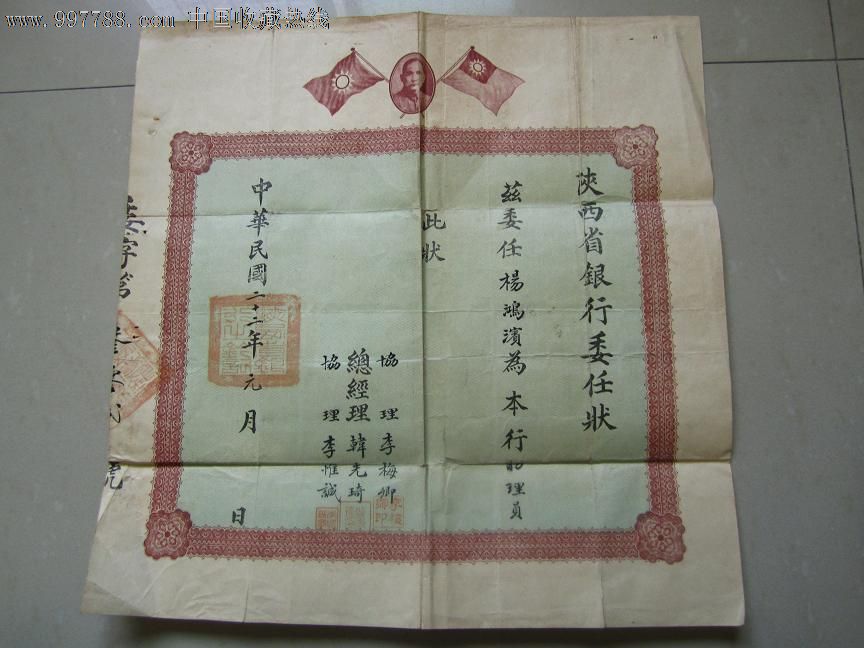 www.997788.com 中国收藏热线
陝西省銀行委任狀
茲委任楊鴻濱為本行助理員
此狀
協理李梅卿
總經理韓光琦
協理李惟誠
中華民國二十二年元月 日
委字第
號